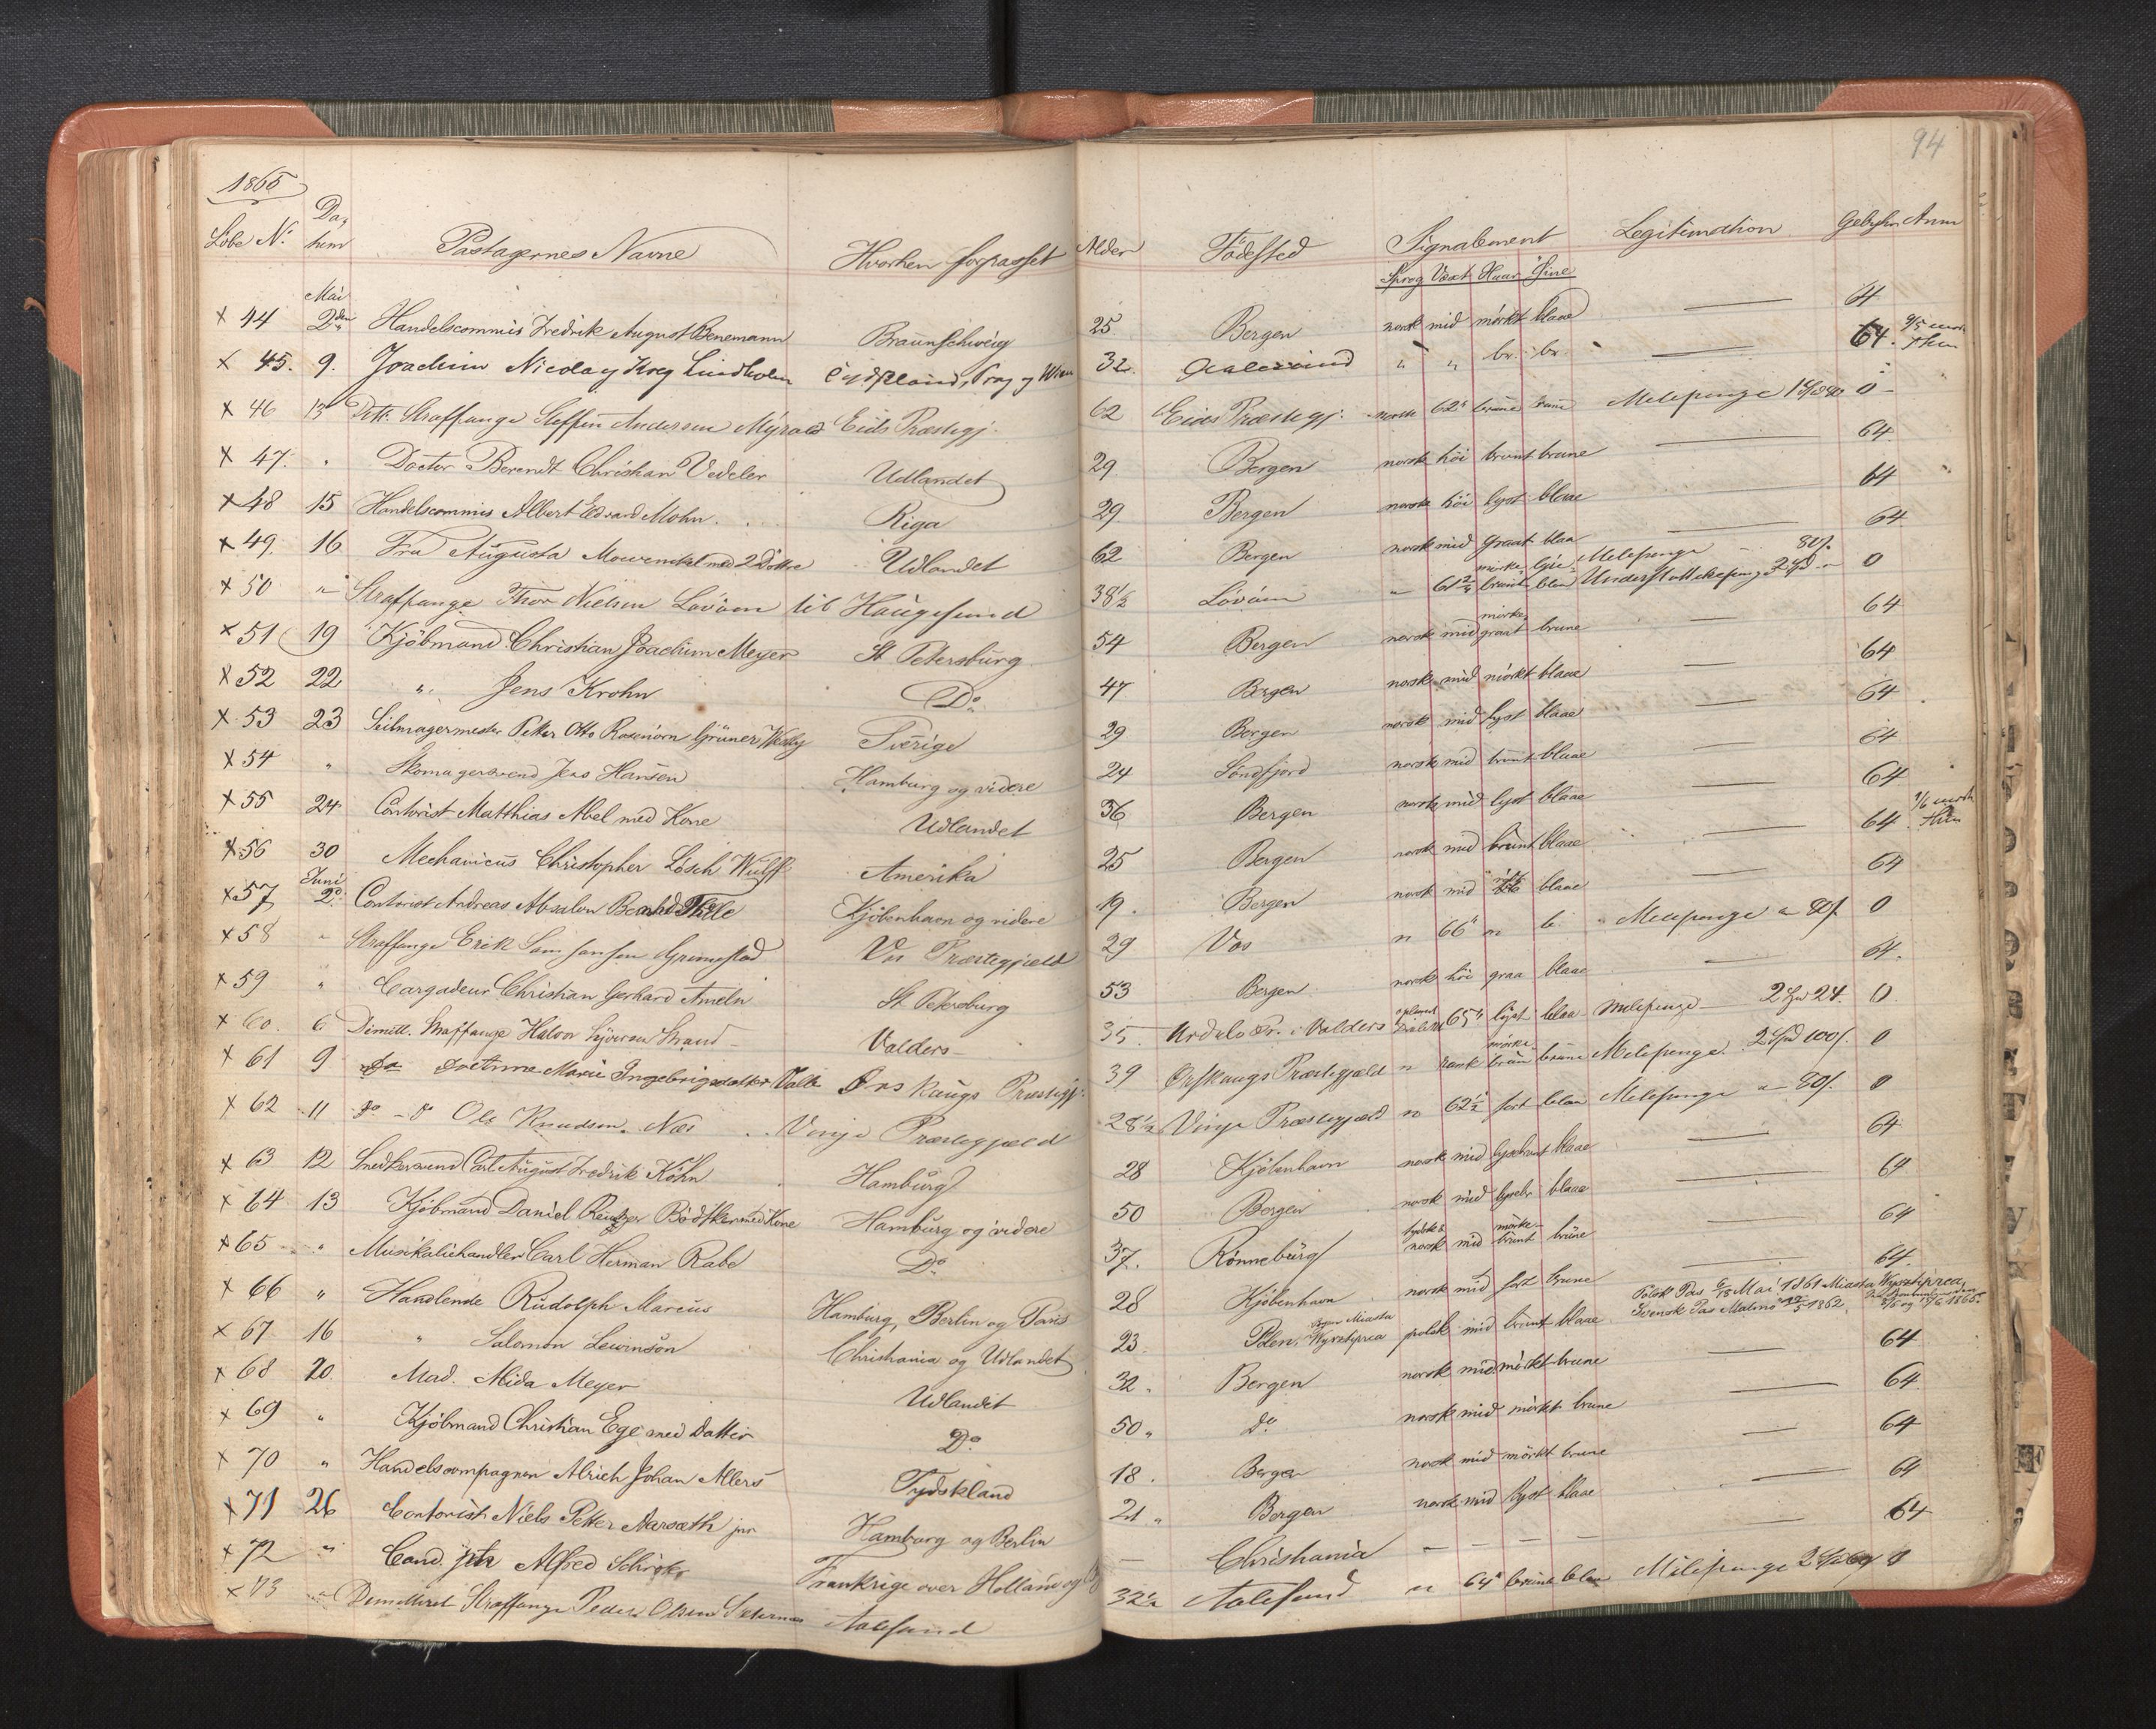 94
1865
Löbe No. Datum Passagernes Navne Hvorhen forpasset Alder Födested Signalement Legitimation Gebyhr Anm
Sprog Vaext Haar Öine
Mai
x 44 2den Handelscommis Fredrik August Benemann Braunschweig 25 Bergen norsk mid mörkt blaae — 64
x 45. 9. Joachim Nicolay Krog Lindholm Tydskland, Prag og Wien 32 " " br. br. — 64.
x 46 13 Straffange Steffen Andersen Myrold Eids Præstegj. 62 Eids Præstegj. norsk 62" brune Melepenge 0
x 47. " Doctor Berendt Christian Vedeler Udlandet 29 Bergen norsk höi brunt brune — 64.
x 48 15 Handelscommis Albert Edvard Mohn. Riga 29 Bergen norsk höi lyst blaae — 64
x 49. 16 Fru Augusta Mowinckel med 2 Döttre Udlandet 62 Bergen norsk mid graat blaa — 64
x 50 " Straffange Thor Nielsen Lövaen til Haugesund 38½ Lövaen " mörke brunt blaa Melepenge 80/. Understöttelsespenge 2 Spd 0
x 51 19 Kjöbmand Christian Joachim Meyer St Petersburg 54 Bergen norsk mid mörke graat brune — 64
x 52 22 " Jens Krohn Do. 47 Bergen norsk mid mörkt blaae — 64
x 53 23 Seilmagermester Peter Otto Rosenörn Grüner Wesby Sverige 29 Bergen norsk mid lyst blaae — 64
x 54 " Skomagersvend Jens Hansen Hamburg og videre 24 Söndfjord norsk mid brunt blaae — 64
x 55 24 Contorist Matthias Abel med Kone Udlandet 36 Bergen norsk mid lyst blaae — 64
x 56 30 Mechanicus Christopher Lösch Wulff Amerika 25 Bergen norsk mid brunt blaae — 64.
Juni
x 57 2. Contorist Andreas Absalon Bernhd Thile Kjöbenhavn og videre 19. Bergen norsk mid blaae — 64
x 58 " Straffange Erik Samsonsen Grimestad Vos Præstegjeld 29 Vos n 66" n b. Melepenge 80/. 0
x 59 " Cargadeur Christian Gerhard Ameln St. Petersburg 53 Bergen norsk höi graa blaae — 64.
x 60. 6 Dimitt. Straffange Halvor Strand Valders 35. Pr. i Valders 65" lyst blaa Melepenge 2 Spd 24. 0.
x 61 9 do Marie Ingebrigsdatter Örskaugs Præstegj. 39 Örskaugs Præstegjeld n mörke brun brune Melepenge. 2 Spd 100/. 0
x 62 11 do - do Ole Knudsen Næs Vinje Præstegjeld 28½ Vinje Præstegjeld n 62½" sort blaa Melepenge 80/. 0
x 63 12 Snedkersvend Carl August Fredrik Köhn Hamburg 28 Kjöbenhavn norsk mid lysebrunt blaae — 64
x 64 13 Kjöbmand Daniel Reutzer Bödtker med Kone Hamburg og videre 50 Bergen norsk mid lysebr. blaae — 64
x 65 " Musikaliehandler Carl Herman Rabe Do 37. Rönneburg tydsk & norsk mid mörke brunt brüne — 64
x 66 " Handlende Rudolph Marcus Hamburg, Berlin og Paris 28 Kjöbenhavn norsk mid sort brune — 64.
x 67 16 " Salomon Lewinson Christiania og Udlandet 23. Polen, Miasta polsk mid brunt blaae Polsk Pas 6/18 Mai 1861 Miasta Svensk Pas Malmö 1862
x 68 20. Mad. Alida Meyer Udlandet 32. Bergen norsk mid. mörkt brune — 64
x 69 " Kjöbmand Christian Ege med Datter Do. 50 " do norsk mid mörkt brune — 64
x 70 " Handelscompagnon Alrich Johan Allers Tydskland 18. Bergen norsk mid mörkt brune — 64
x 71 26 Contorist Niels Petter Aarsæth jnr Hamburg og Berlin 21 " Bergen norsk mid lyst blaae — 64
x 72 " Cand. Alfred Frankrige over Holland og — Christiania — — — — 64
x 73 " Dimitteret Straffange Peder Olsen Aalesund 32½ Aalesund n 64" brunt blaa Melepenge 2 Spd 0